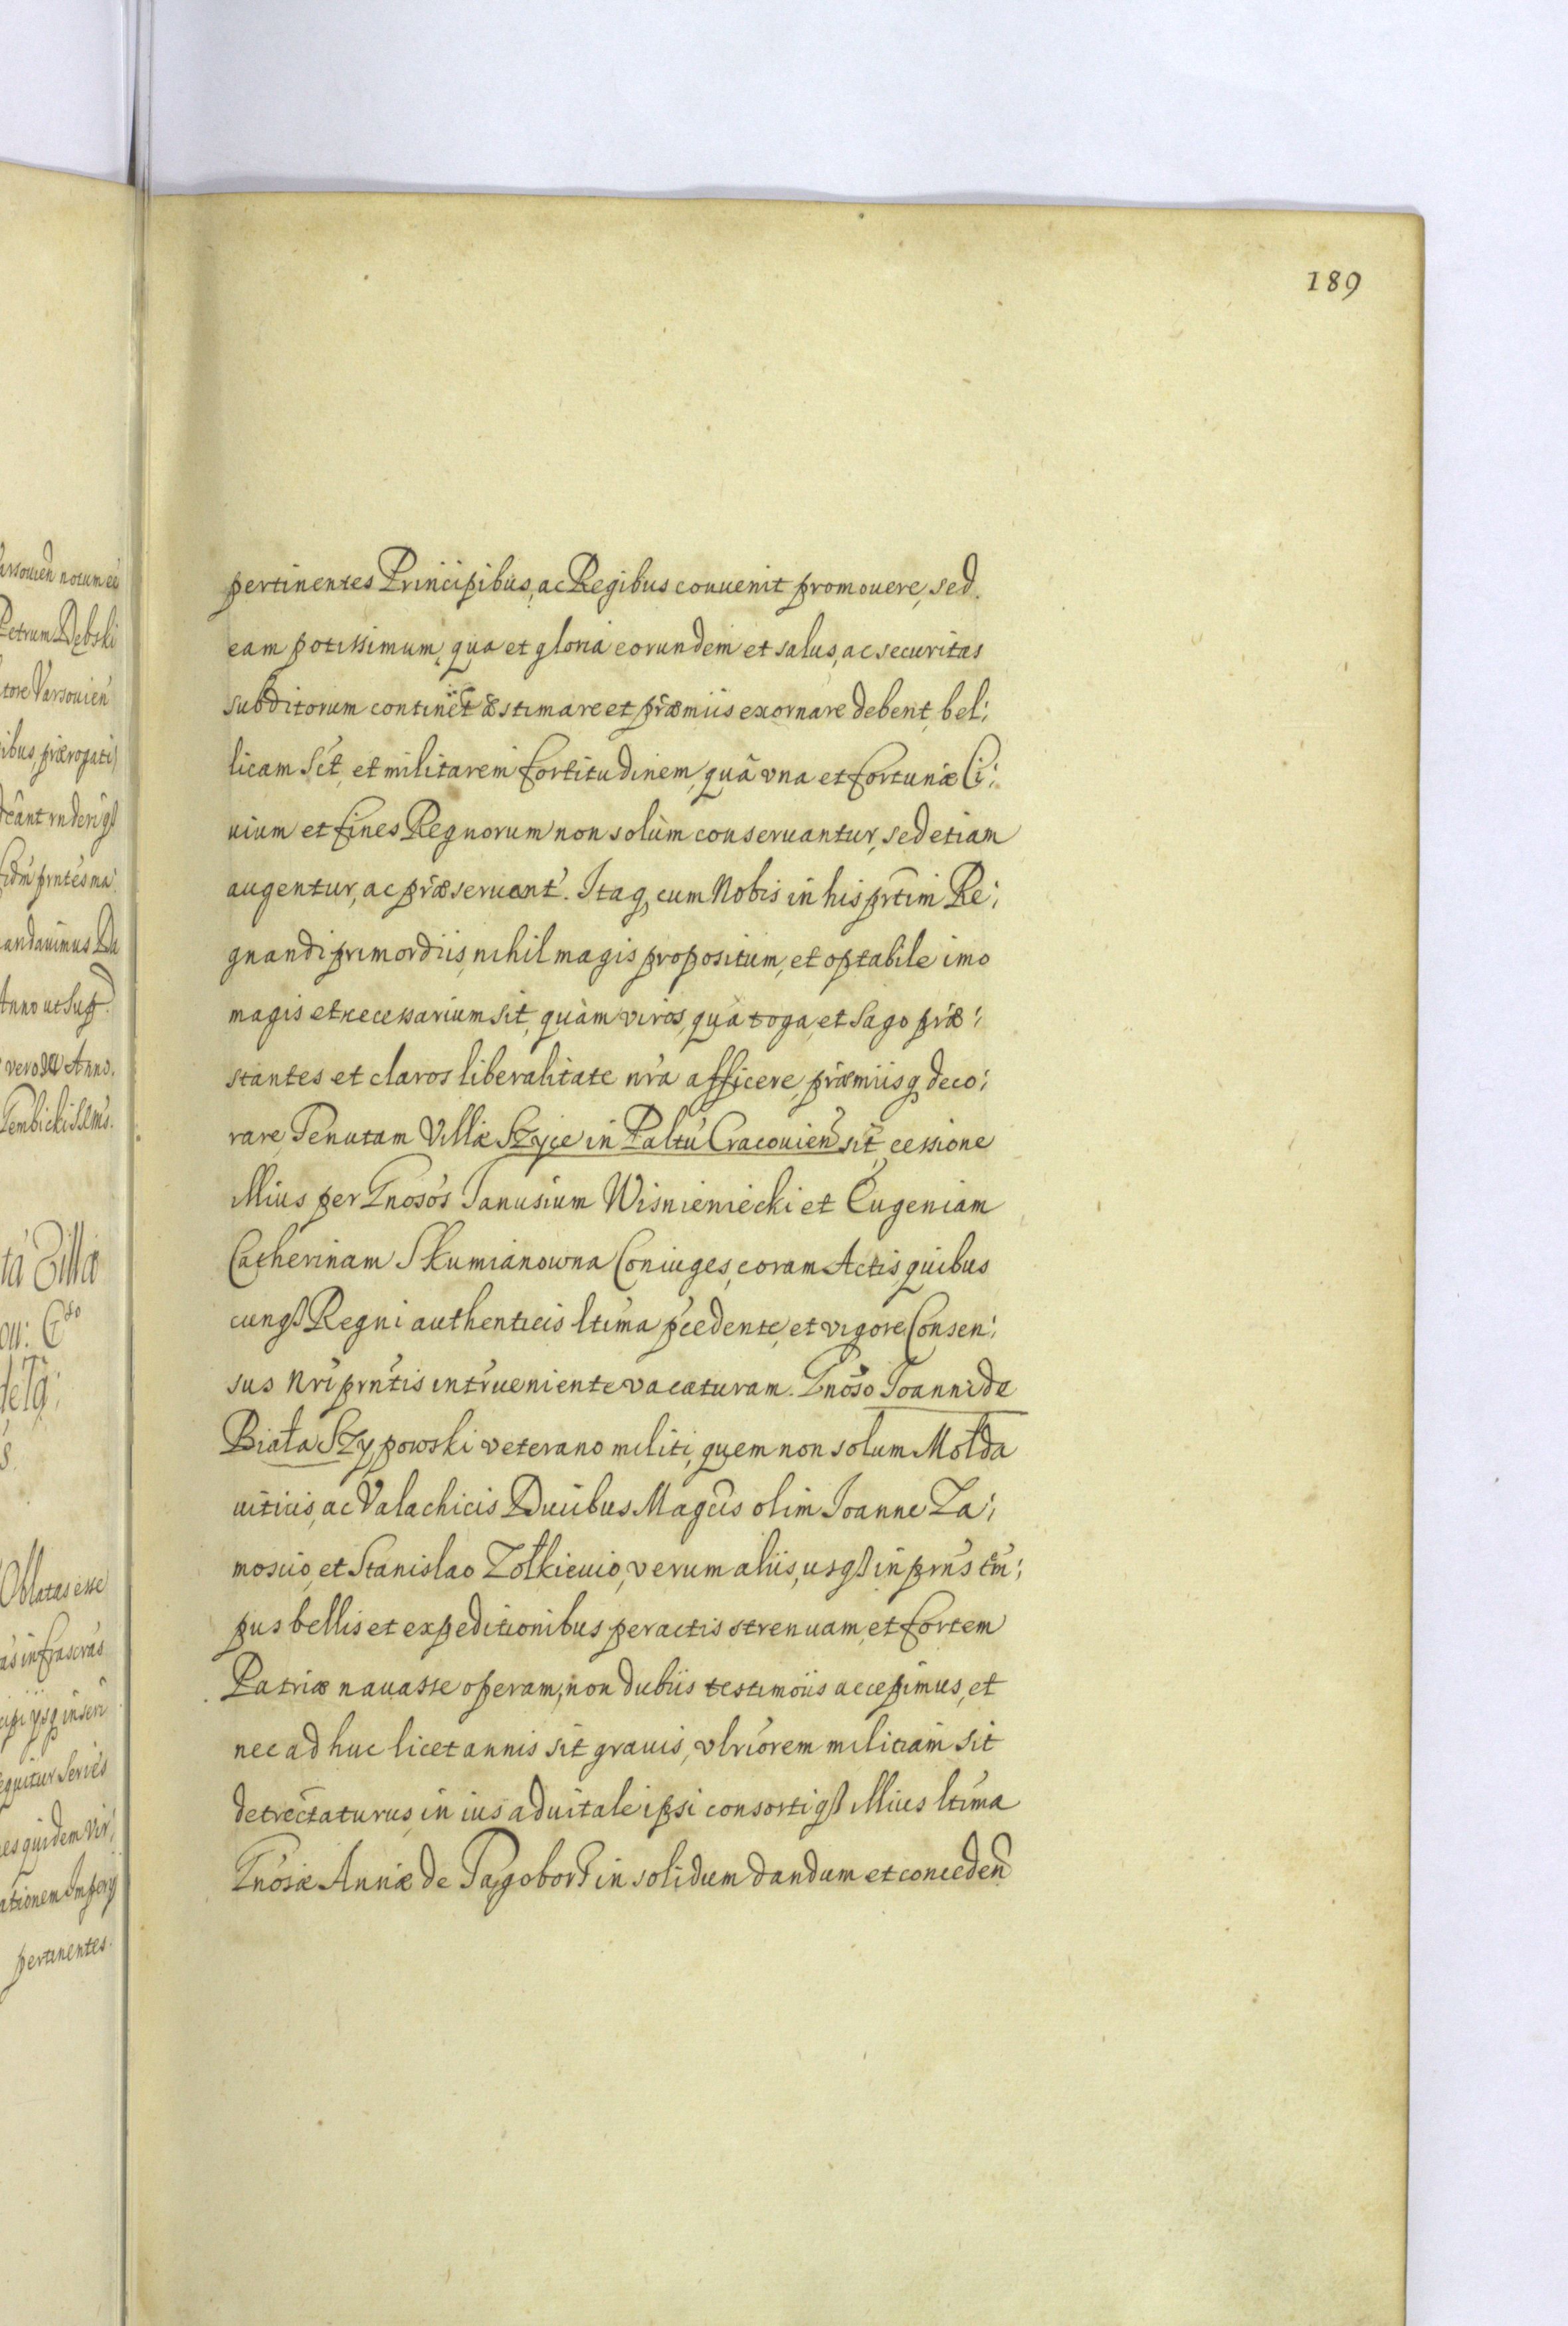 189
pertinentes Principibus, ac Regibus conuenit promouere, sed
eam potissimum, qua et gloria eorundem et salus, ac securitas
subditorum continet æstimare et præmiis exornare debent, bel:
licam sct, et militarem fortitudinem, quâ vna et fortunæ Ci:
uium et fines Regnorum non solùm conseruantur, sed etiam
augentur, ac præseruant. Itaq, cum Nobis in his prtim Re:
gnandi primordiis, nihil magis propositum, et optabile imo
magis et necessarium sit, quàm viros, quà toga, et sago præ:
stantes et claros liberalitate nra afficere, præmiisq deco:
rare, Tenutam Villæ Szyce in Paltu Cracouien sit, cessione
illius per Gnosos Ianusium Wisnieniecki et Eugeniam
Catherinam Skumianowna Coniuges, coram Actis quibus
cunqß Regni authenticis ltima pcedente, et vigore Consen:
sus Nri prntis intrueniente vacaturam. Gnoso Joanni de
Biała Szypowski veterano militi, quem non solum Mołda
uiticis, ac Valachicis Ducibus Magcis olim Joanne Za:
moscio, et Stanislao Żołkieuio, verum aliis, usqß in prns tm:
pus bellis et expeditionibus peractis strenuam, et fortem
Patriæ nauasse operam, non dubiis testimoiis accepimus, et
nec ad huc licet annis sit grauis, vlriorem militiam sit
detrectaturus, in ius aduitale ipsi consortiqß illius ltima
Gnosæ Annæ de in solidum dandum et conceden
arsouien notum eê
Petrum Dębski
tore Varsouien
andauimus Da
Anno ut
vero Anno.
Oblatas esse
equitur Series
es quidem Vir;
ationem Impery
pertinentes.